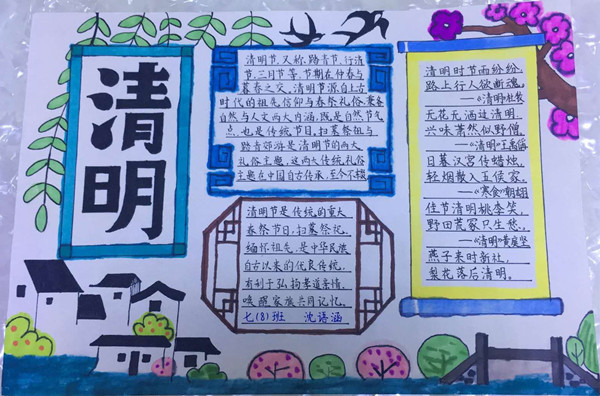 清明
清明节,又称踏青节、行清
节、三月节等,节期在仲春与
暮春之交。清明节源自上古
时代的祖先信仰与春祭礼俗,兼备
自然与人文两大内涵,既是自然节气
点,也是传统节日,扫墓祭祖与
踏青郊游是清明节的两大
礼俗主题,这两大传统礼俗
主题在中国自古传承,至今不辍
清明节是传统的重大
春祭节日,扫墓祭祀、
缅怀祖先,是中华民族
自古以来的优良传统,
有利于弘扬孝道亲情、
唤醒家族共同记忆。
七(8)班 沈语涵
清明时节雨纷纷,
路上行人欲断魂。
——《清明》杜牧
无花无酒过清明,
兴味萧然似野僧。
——《清明》王禹偁
日暮汉宫传蜡烛,
轻烟散入五侯家。
——《寒食》韩翃
佳节清明桃李笑,
野田荒冢只生愁。
——《清明》黄庭坚
燕子来时新社,
梨花落后清明。